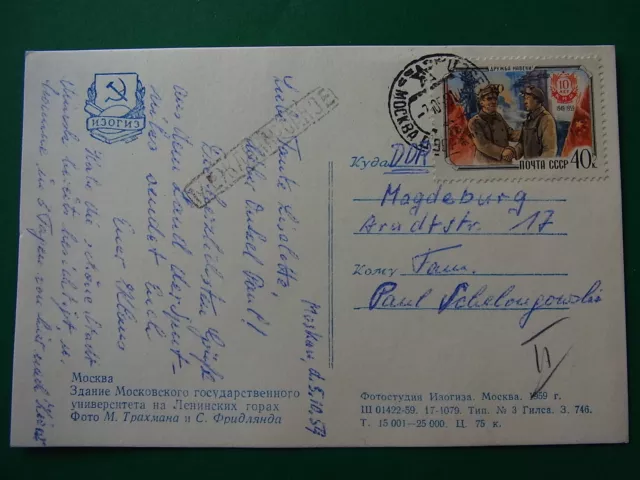 ИЗОГИЗ
Moskau, d. 5.10.59
Liebe Tante Liselotte,
lieber Onkel Paul!
Die herzlichsten Grüße
aus dem Land der Sput-
niks sendet Euch
Euer Klaus
Habe die schöne Stadt
bereits besichtigt u.
in 5 Tagen von hier nach
МЕЖДУНАРОДНОЕ
ДРУЖБА НАВЕКИ
10 ЛЕТ
ПОЧТА СССР 40к
МОСКВА
Куда DDR
Magdeburg
Arndtstr. 17
Кому Fam.
Paul
II
Москва
Здание Московского государственного
университета на Ленинских горах
Фото М. Трахмана и С. Фридлянда
Фотостудия Изогиза. Москва. 1959 г.
Ш 01422-59. 17-1079. Тип. № 3 Гилса. З. 746.
Т. 15 001—25 000. Ц. 75 к.